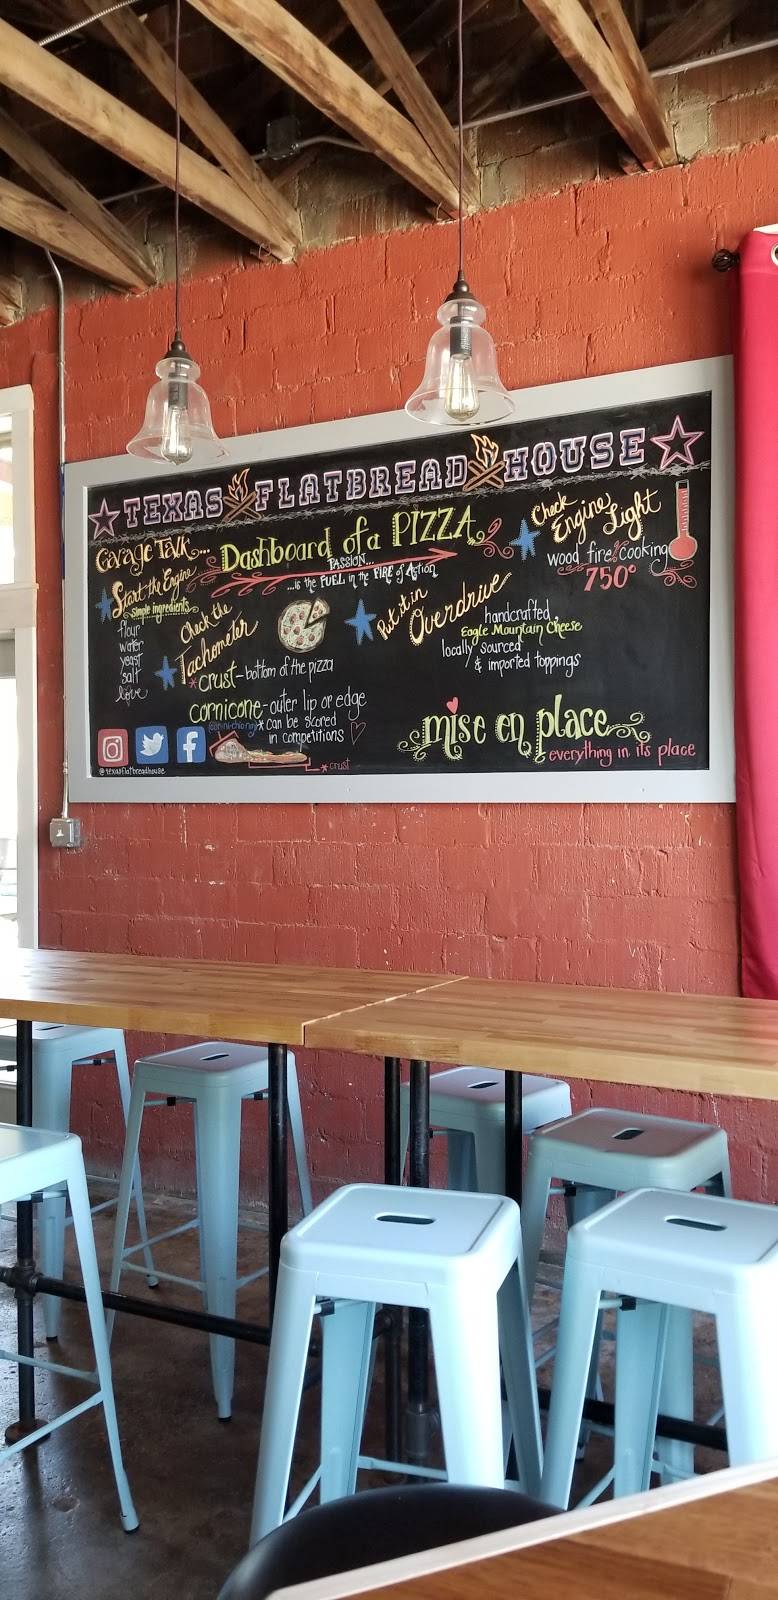 TEXAS FLATBREAD HOUSE
Garage Talk...
Dashboard of a PIZZA
PASSION...
...is the FUEL in the FIRE of Action
Start the Engine
simple ingredients
flour
water
yeast
salt
love
Check the
Tachometer
*crust - bottom of the pizza
cornicone - outer lip or edge
* can be scored
in competitions
* crust
Put it in
Overdrive
handcrafted
Eagle Mountain Cheese
locally sourced
& imported toppings
Check
Engine Light
wood fire cooking
750°
mise en place
everything in its place
@texasflatbreadhouse